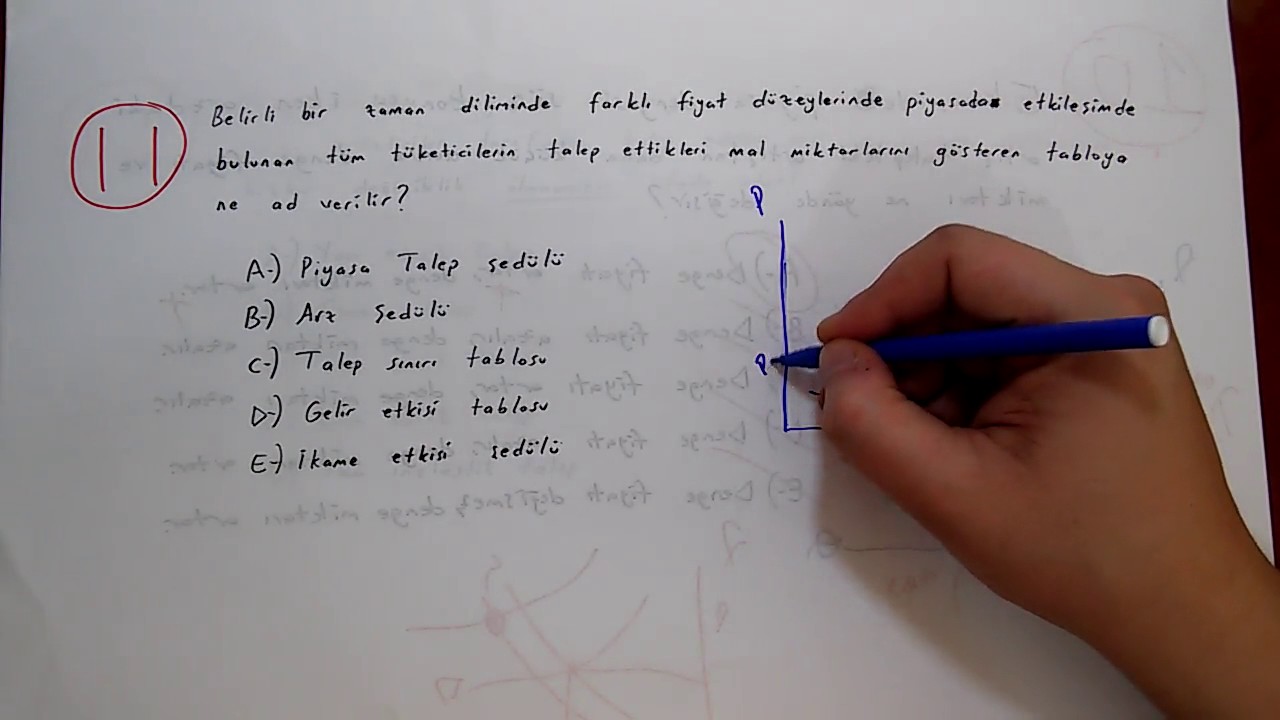 11
Belirli bir zaman diliminde farklı fiyat düzeylerinde piyasada etkileşimde
bulunan tüm tüketicilerin talep ettikleri mal miktarlarını gösteren tabloya
ne ad verilir?
P
A-) Piyasa Talep şedülü
B-) Arz Şedülü
C-) Talep sınırı tablosu
P
D-) Gelir etkisi tablosu
E-) İkame etkisi şedülü